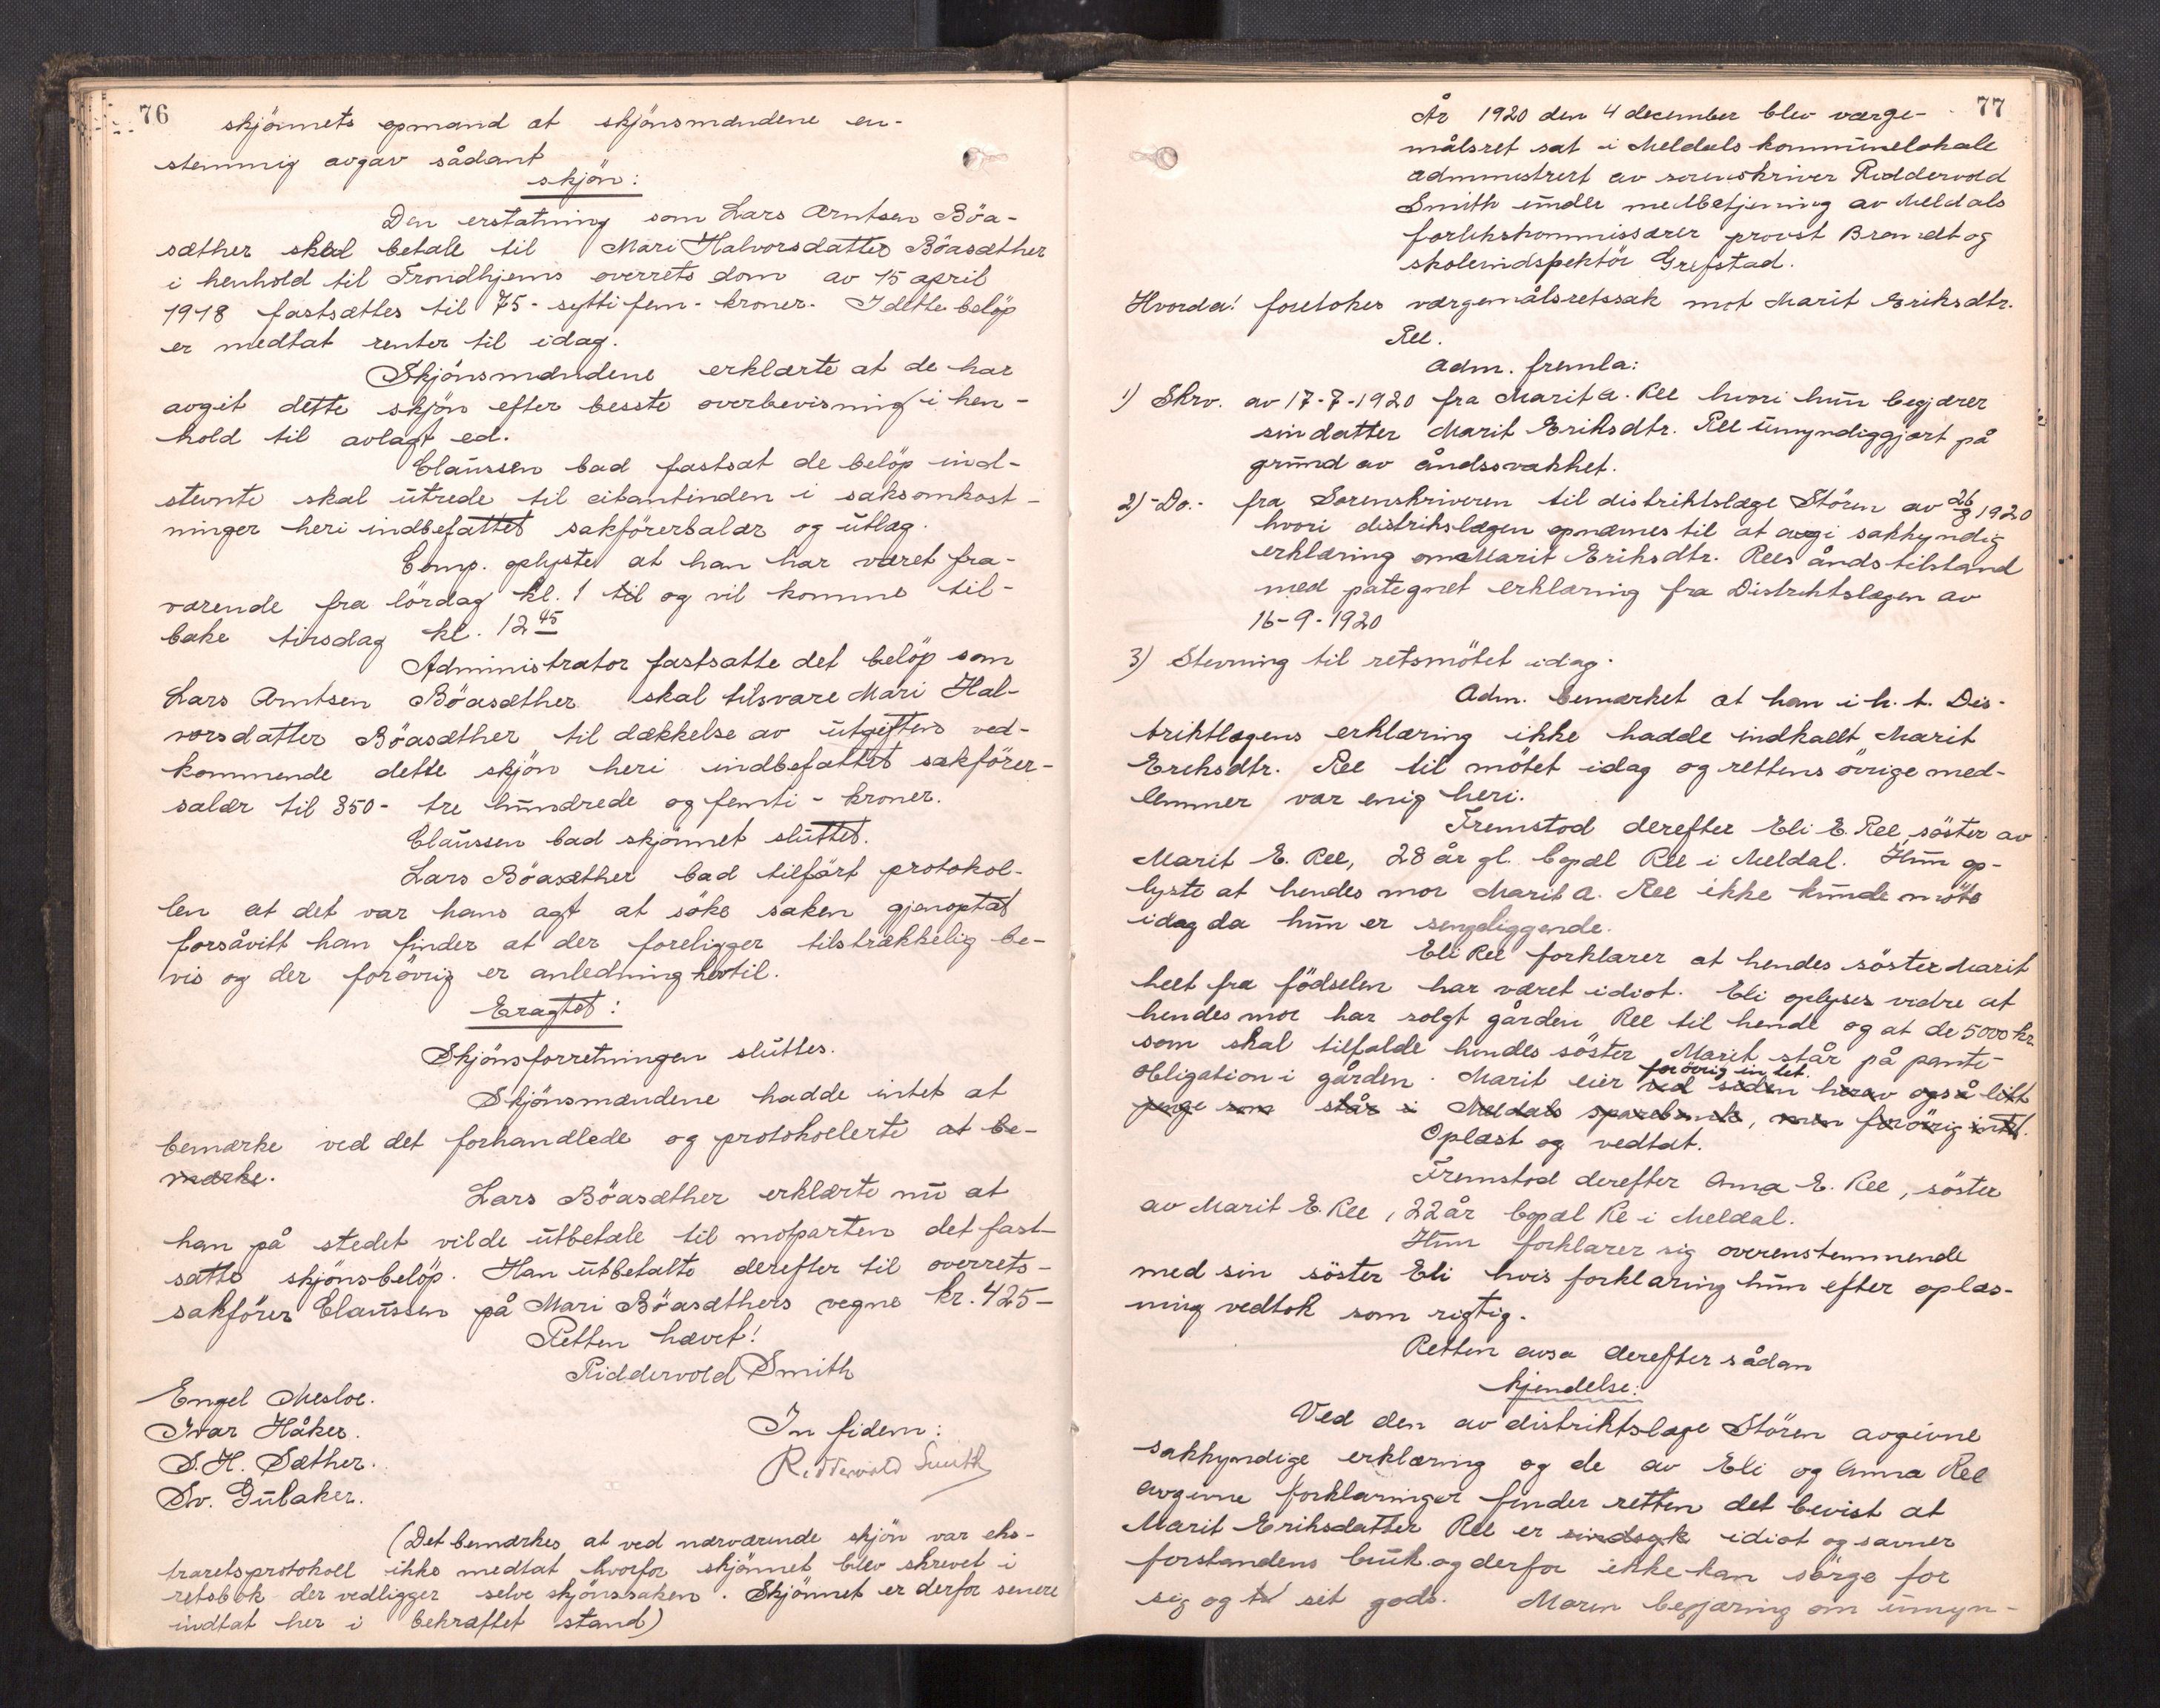 76
skjönnets opmand at skjönsmændene en-
stemmig avgav sådant
skjön:
Den erstatning som Lars Arntsen Böa-
sæther skal betale til Mari Halvorsdatter Böasæther
i henhold til Trondhjems overrets dom av 15 april
1918 fastsættes til 75 - sytti fem - kroner. I dette belöp
er medtat renter til idag.
Skjönsmændene erklærte at de har
avgit dette skjön efter besste overbevisning i hen-
hold til avlagt ed.
Claussen bad fastsat de belöp ind-
stevnte skal utrede til citantinden i saksomkost-
ninger heri indbefattet sakförersalær og utlæg.
Comp. oplyste at han har været fra-
værende fra lördag kl. 1 til og vil komme til-
bake tirsdag kl. 12 45
Administrator fastsatte det belöp som
Lars Arntsen Böasæther skal tilsvare Mari Hal-
vorsdatter Böasæther til dækkelse av utgiftens ved-
kommende dette skjön heri indbefattet sakförer-
salær til 350 - tre hundrede og femti - kroner.
Claussen bad skjönnet sluttet.
Lars Böasæther bad tilfört protokol-
len at det var hans agt at söke saken gjenoptat
forsåvitt han finder at der foreligger tilstrækkelig be-
vis og der forövrig er anledning hertil.
Eragtet:
Skjönsforretningen sluttes.
Skjönsmændene hadde intet at
bemærke ved det forhandlede og protokollerte at be-
mærke.
Lars Böasæther erklærte nu at
han på stedet vilde utbetale til motparten det fast-
satte skjönsbelöp. Han utbetalte derefter til overrets-
sakförer Claussen på Mari Böasæthers vegne kr. 425-
Retten hævet!
Riddervold Smith
Engel Mesloe.
Ivar Håker.
In fidem:
S. H. Sæther.
Riddervold Smith
Sv. Gulaker.
(Det bemærkes at ved nærværende skjön var eks-
traretsprotokoll ikke medtat hvorfor skjönnet blev skrevet i
retsbok der vedligger selve skjönssaken. Skjönnet er derfor senere
indtat her i bekræftet stand)
77
År 1920 den 4 december blev værge-
målsret sat i Meldals kommunelokale
administrert av sorenskriver Riddervold
Smith under medbetjening av Meldals
forlikskommissærer provst Brandt og
skoleindspektör Grefstad.
Hvorda! foretokes værgemålsretssak mot Marit Eriksdtr.
Ree.
Adm. fremla:
1) Skrv. av 17-7-1920 fra Marit A. Ree hvori hun begjærer
sin datter Marit Eriksdtr. Ree umyndiggjort på
grund av åndssvakhet.
2) - Do. - fra Sorenskriveren til distriktslæge Stören av 26/8 1920
hvori distrikslægen opnævnes til at avgi sakkyndig
erklæring om Marit Eriksdtr. Rees åndstilstand
med påtegnet erklæring fra Distriktslægen av
16-9-1920
3) Stevning til retsmötet idag.
Adm. bemærket at han i h. t. Dis-
triktlægens erklæring ikke hadde indkaldt Marit
Eriksdtr. Ree til mötet idag og rettens övrige med-
lemmer var enig heri.
Fremstod derefter Eli E. Ree, söster av
Marit E. Ree, 28 år gl. bopæl Ree i Meldal. Hun op-
lyste at hendes mor Marit A. Ree ikke kunde möte
idag da hun er sengeliggende.
Eli Ree forklarer at hendes söster Marit
helt fra födselen har været idiot. Eli oplyses vidre at
hendes mor har solgt gården Ree til hende og at de 5000 kr.
som skal tilfalde hendes söster Marit står på pante-
forövrig intet.
obligation i gården. Marit eier ved siden herav også litt
penge som står i Meldals sparebank, men forövrig intet.
Oplæst og vedtat.
Fremstod derefter Anna E. Ree, söster
av Marit E. Ree, 22 år bopæl Re i Meldal.
Hun forklarer sig overenstemmende
med sin söster Eli hvis forklaring hun efter oplæs-
ning vedtok som rigtig.
Retten avsa derefter sådan
kjendelse:
Ved den av distriktslæge Stören avgivne
sakkyndige erklæring og de av Eli og Anna Ree
avgivne forklaringer finder retten det bevist at
Marit Eriksdatter Ree er sindsyk idiot og savner
forstandens bruk og derfor ikke kan sörge for
sig og sit gods. Moren begjæring om umyn-